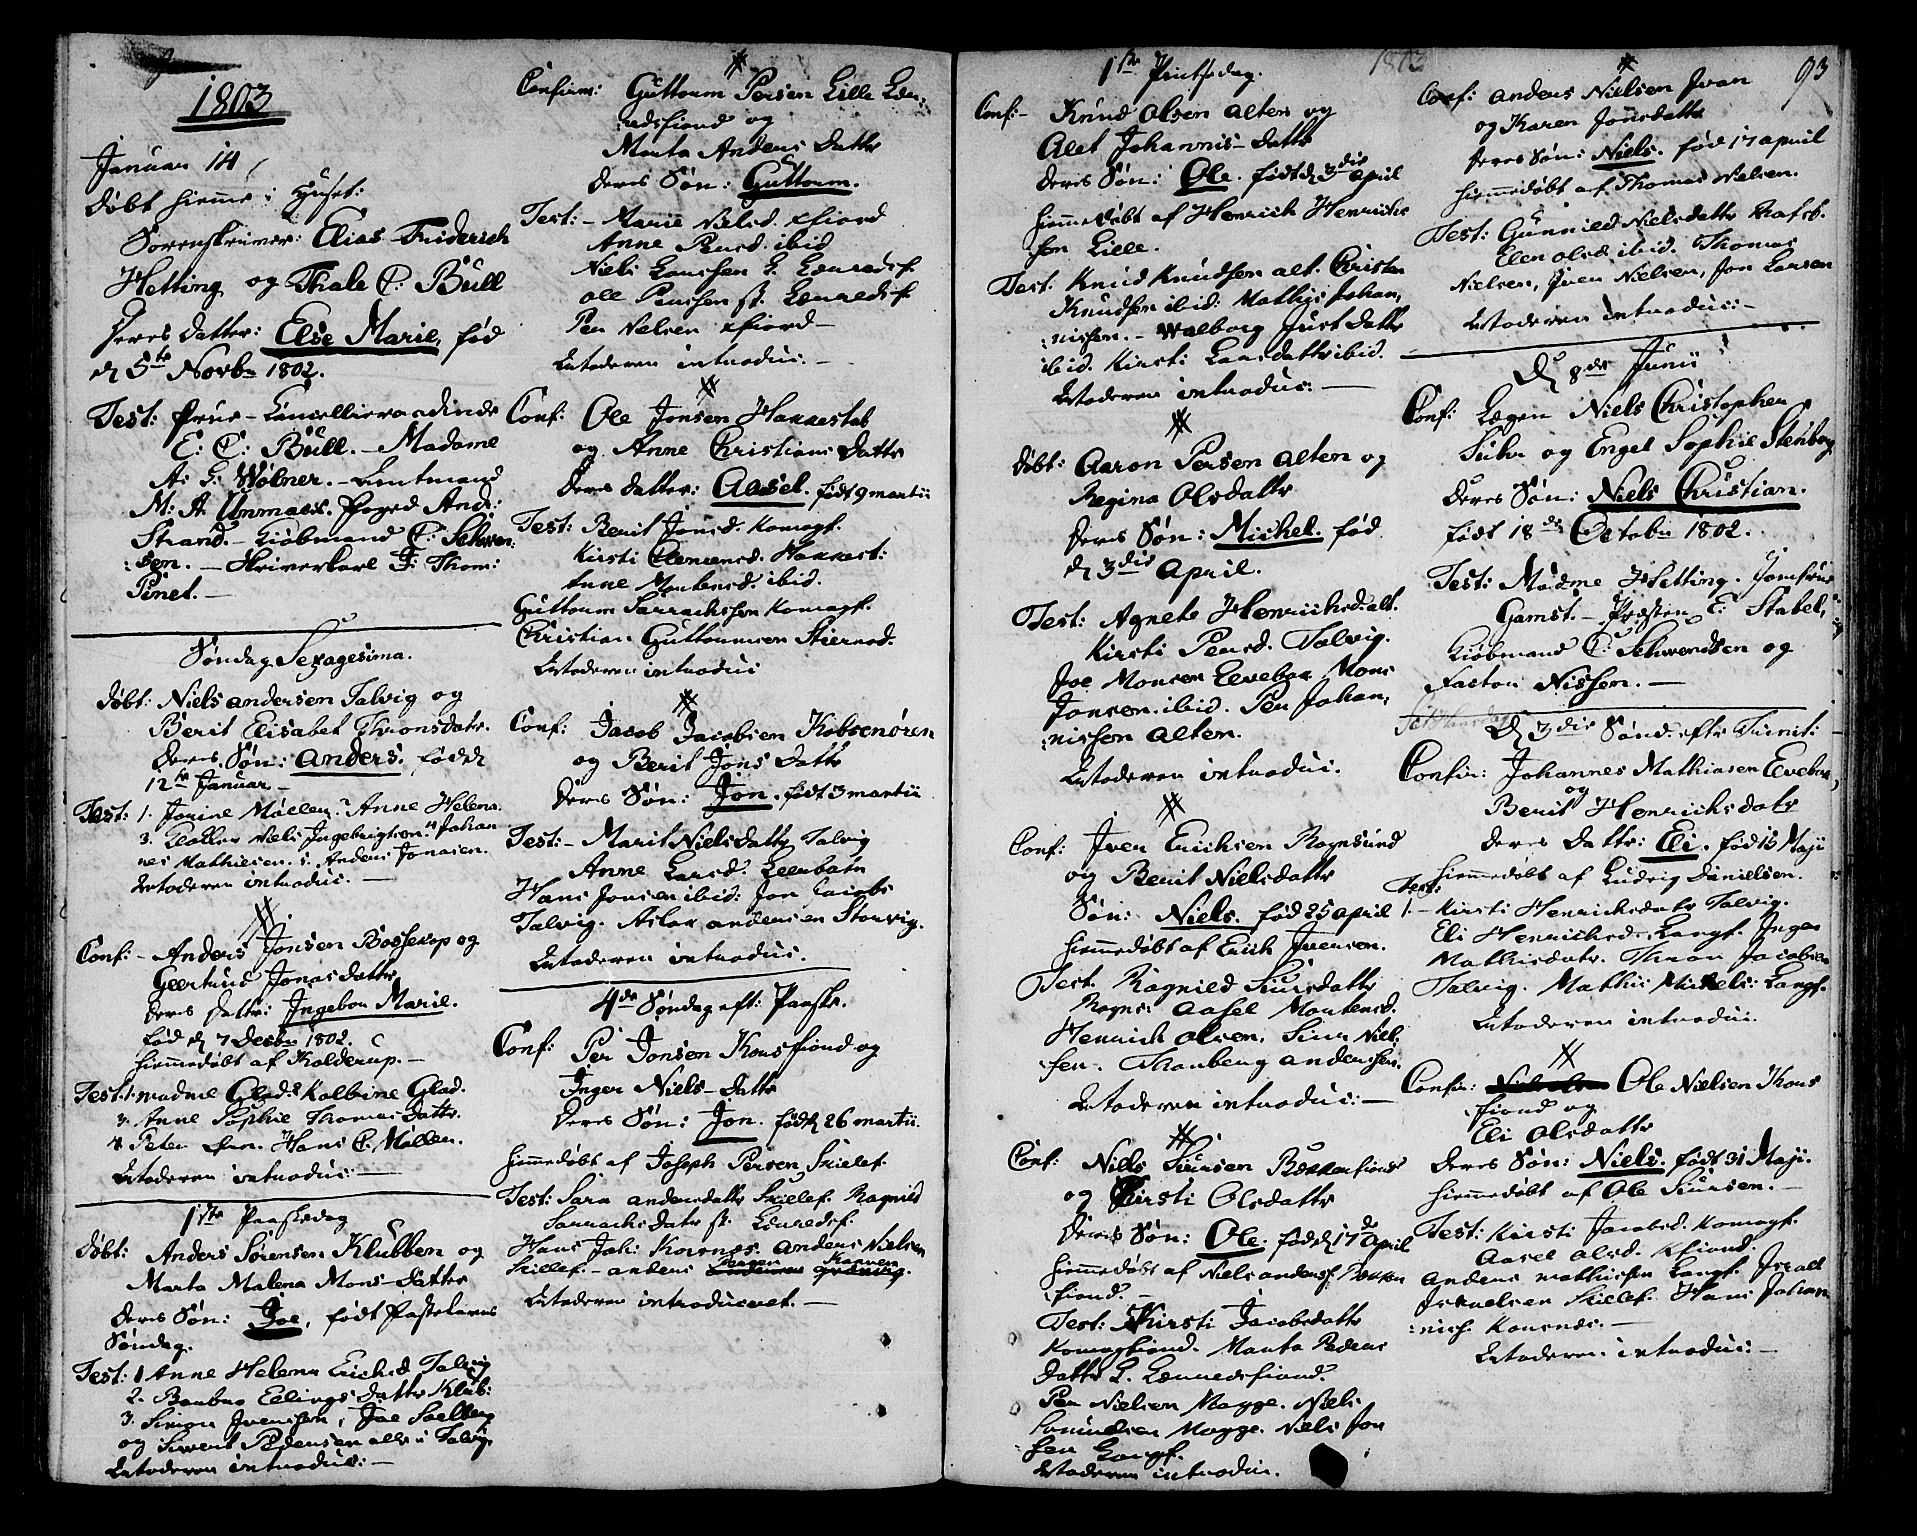 1803
Januar 14,
Døbt hiemme i Huset:
Sorenskriver: Elias Friderich
Hetting og Thale C: Bull
Deres Datter: Else Marie, fød
d 5te Novbr 1802.
Test: Frue Cancellieraadinde
E: C: Bull. – Madame
A: G: Wolner. – Leutmand
M: A: Unmack. Foged And:
Strand. – Kiøbmand C: Schwen:
:sen. – Skriverkarl T: Thom:
Pinet. –
Søndag Sexagesima.
Døbt: Niels Andersen Talvig og
Berit Elisabet Thronsdatr.
Deres Søn: Anders. fød d
12te Januar. –
Test: 1. Jorine Møller. 2 Anne Helena
3. Niels Ingebrigtsen. 4 Johan
nes Mathiesen. 5. Anders Jonasen.
Moderen introduc: –
Conf: – Anders Jonsen Bossekop og
Geertrud Jonas Datter
Deres Datter: Ingebor Marie.
fød d 7 Decbr 1802.
hiemmedøbt af Kolderup. –
Test. 1. Madme Glad. 2 Kolbine Glad.
3. Anne Sophie Thomas Datter.
4. Peter Hans C. Møller.
Moderen introduc: –
1ste Paaskedag
Døbt: Anders Sørensen Klubben og
Marta Malena Mons-Datter
Deres Søn: Joe, født Fastelavns
Søndag.
Test: 1 Anne Helena Erichsd Talvig
2. Barbro Ellings Datter Klub:
3. Simon Iversen, Joe Soelberg
og Siwert Pedersen alle i Talvig.
Moderen introduc: –
Confirm: Guttorm Persen Lille Ler:
:redsfiord og
Marta Anders Datter
Deres Søn: Guttorm.
Test: – Marie Nielsd. Kfiord
Anne Persd. ibid
Niels Larssen L. Lerredsf.
Ole Perssen st. Lerredsf.
Per Nielsen Kfiord –
Moderen introduc: –
Conf: Ole Jonsen Hakkestab
og Anne Christians Datter
Deres Datter: Aasel. født 9 Martii
Test: Berit Jonsd. Komagf.
Kirsti Clemensd. Hakkest:
Anne Mortensd. ibid.
Guttorm Sarrachssen Komagf.
Christian Guttormsen Stiernøe.
Moderen introduc
Conf: Jacob Jacobsen Kobsenøren
og Berit Jons Datter
Deres Søn: Jon. født 3 Martii
Test: – Marit Nielsdatter Talvig
Anne Larsd. Leerbotn
Hans Jonsen ibid: Jon Jacobs
Talvig. Aslak Andersen Storvig.
Moderen introduc.
4de Søndag eft: Paaske.
Conf: Per Jonsen Korsfiord og
Inger Niels-Datter
Deres Søn: Jon. fød d 26 Martii.
hiemmedøbt af Joseph Persen Skillef.
Test: Sara Andersdatter Skillef. Ragnild
Sarrachs Datr st. Lerredsf.
Hans Joh: Korsnes. Anders Nielsen
Skillef. – Anders
Moderen introduceret. –
1ste Pintsedag.
1803
93
Conf: – Knud Olsen Alten og
Alet Johannis-Datter
Deres Søn: Ole. født d 3die April
hiemmedøbt af Henrich Henrich
sen Lille.
Test: Knud Knudsen Alt. Christen
Knudsen ibid: Mathis Johan,
:nissen. – Walborg Just Datter
ibid. Kirsti Larsdatter ibid.
Moderen introduc: –
Døbt: Aaron Persen Alten og
Regina Olsdatter
Deres Søn: Michel. fød
d 3die April.
Test: Agnete Henrichsd: alt.
Kirsti Persd. Talvig.
Joe Monsen Elvebak Mons
Jonsen. ibid. Per Johan,
:nissen Alten.
Moderen introduc.
Conf: Iver Erichsen Rognsund
og Berit Nielsdatter
Søn: Niels. fød 25 April
hiemmedøbt af Erich Iversen.
Test. Ragnild Siursdatter
Rogns: Aasel Mortensd.
Henrich Olsen. Siur Niel:
sen. Thorberg Anderssen.
Moderen introduc: –
Conf: Niels Siursen Bekkerfiord
og Kirsti Olsdatter
Deres Søn: Ole. fød d 17de April
hiemmedøbt af Niels Anderss. Bekker
fiord. –
Test: Kirsti Jacobsdatter
Komagfiord. Marta Peders
Datter L. Lerredsfiord.
Per Nielsen Magge. Niels
Magge. Niels Jon
sen Langf.
Moderen introduc.
Conf: Anders Nielsen Ivan
og Karen Jonsdatter
Deres Søn: Niels. fød 17 April
hiemmedøbt af Thomas Nielsen.
Test: Gunnild Nielsdatter Rafsb.
Elen Olsd. ibid. Thomas
Nielsen, Iver Nielsen, Jon Larsen
Moderen introduc: –
D 8de Junii
Conf: Lægen Niels Christopher
Suhr og Engel Sophie Stenborg
Deres Søn: Niels Christian.
født 18de October 1802.
Test: Madme Hetting. Jomfrue
Gamst. – Præsten E: Stabel,
Kiøbmand C: Schwendsen og
Factor Nissen. –
D 3die Sønd. eftr Trinit:
Confir: Johannes Mathiasen Elvebak
og
Berit Henrichsdatr
Deres Dattr: Eli. fød 15 Maji
hiemmedøbt af Ludvig Danielsen.
Test:
1. – Kirsti Henrichsdatr Talvig.
Eli Henrichsd. Langf. Inger
Mathisdatr. Thron Jacobsen
Talvig. Mathis Mickels: Langf.
Moderen introduc.
Confir: Ole Nielsen Kors
fiord og
Eli Olsdatter
Deres Søn: Niels. født 31 Maji.
hiemmedøbt af Ole Siursen. –
Test: Kirsti Jacobsd. Komagf.
Aasel Olsd. Kfiord.
Anders Mathissen Langf. Israel
Israelsen Skillef. Hans Johan
:niss. Korsnes. –
Moderen introduc: –